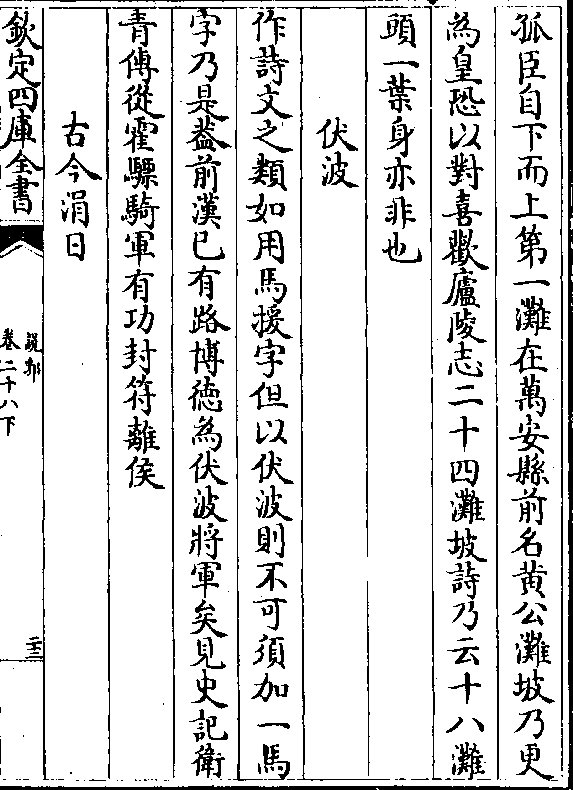 孤臣自下而上第一灘在萬安縣前名黄公灘坡乃更
為皇恐以對喜歡廬陵志二十四灘坡詩乃云十八灘
頭一葉身亦非也
伏波
作詩文之類如用馬援字但以伏波則不可須加一馬
字乃是葢前漢已有路博徳為伏波將軍矣見史記衛
青傳從霍驃騎軍有功封符離侯
古今涓日
欽定四庫全書
說郛
卷二十八下
二十三